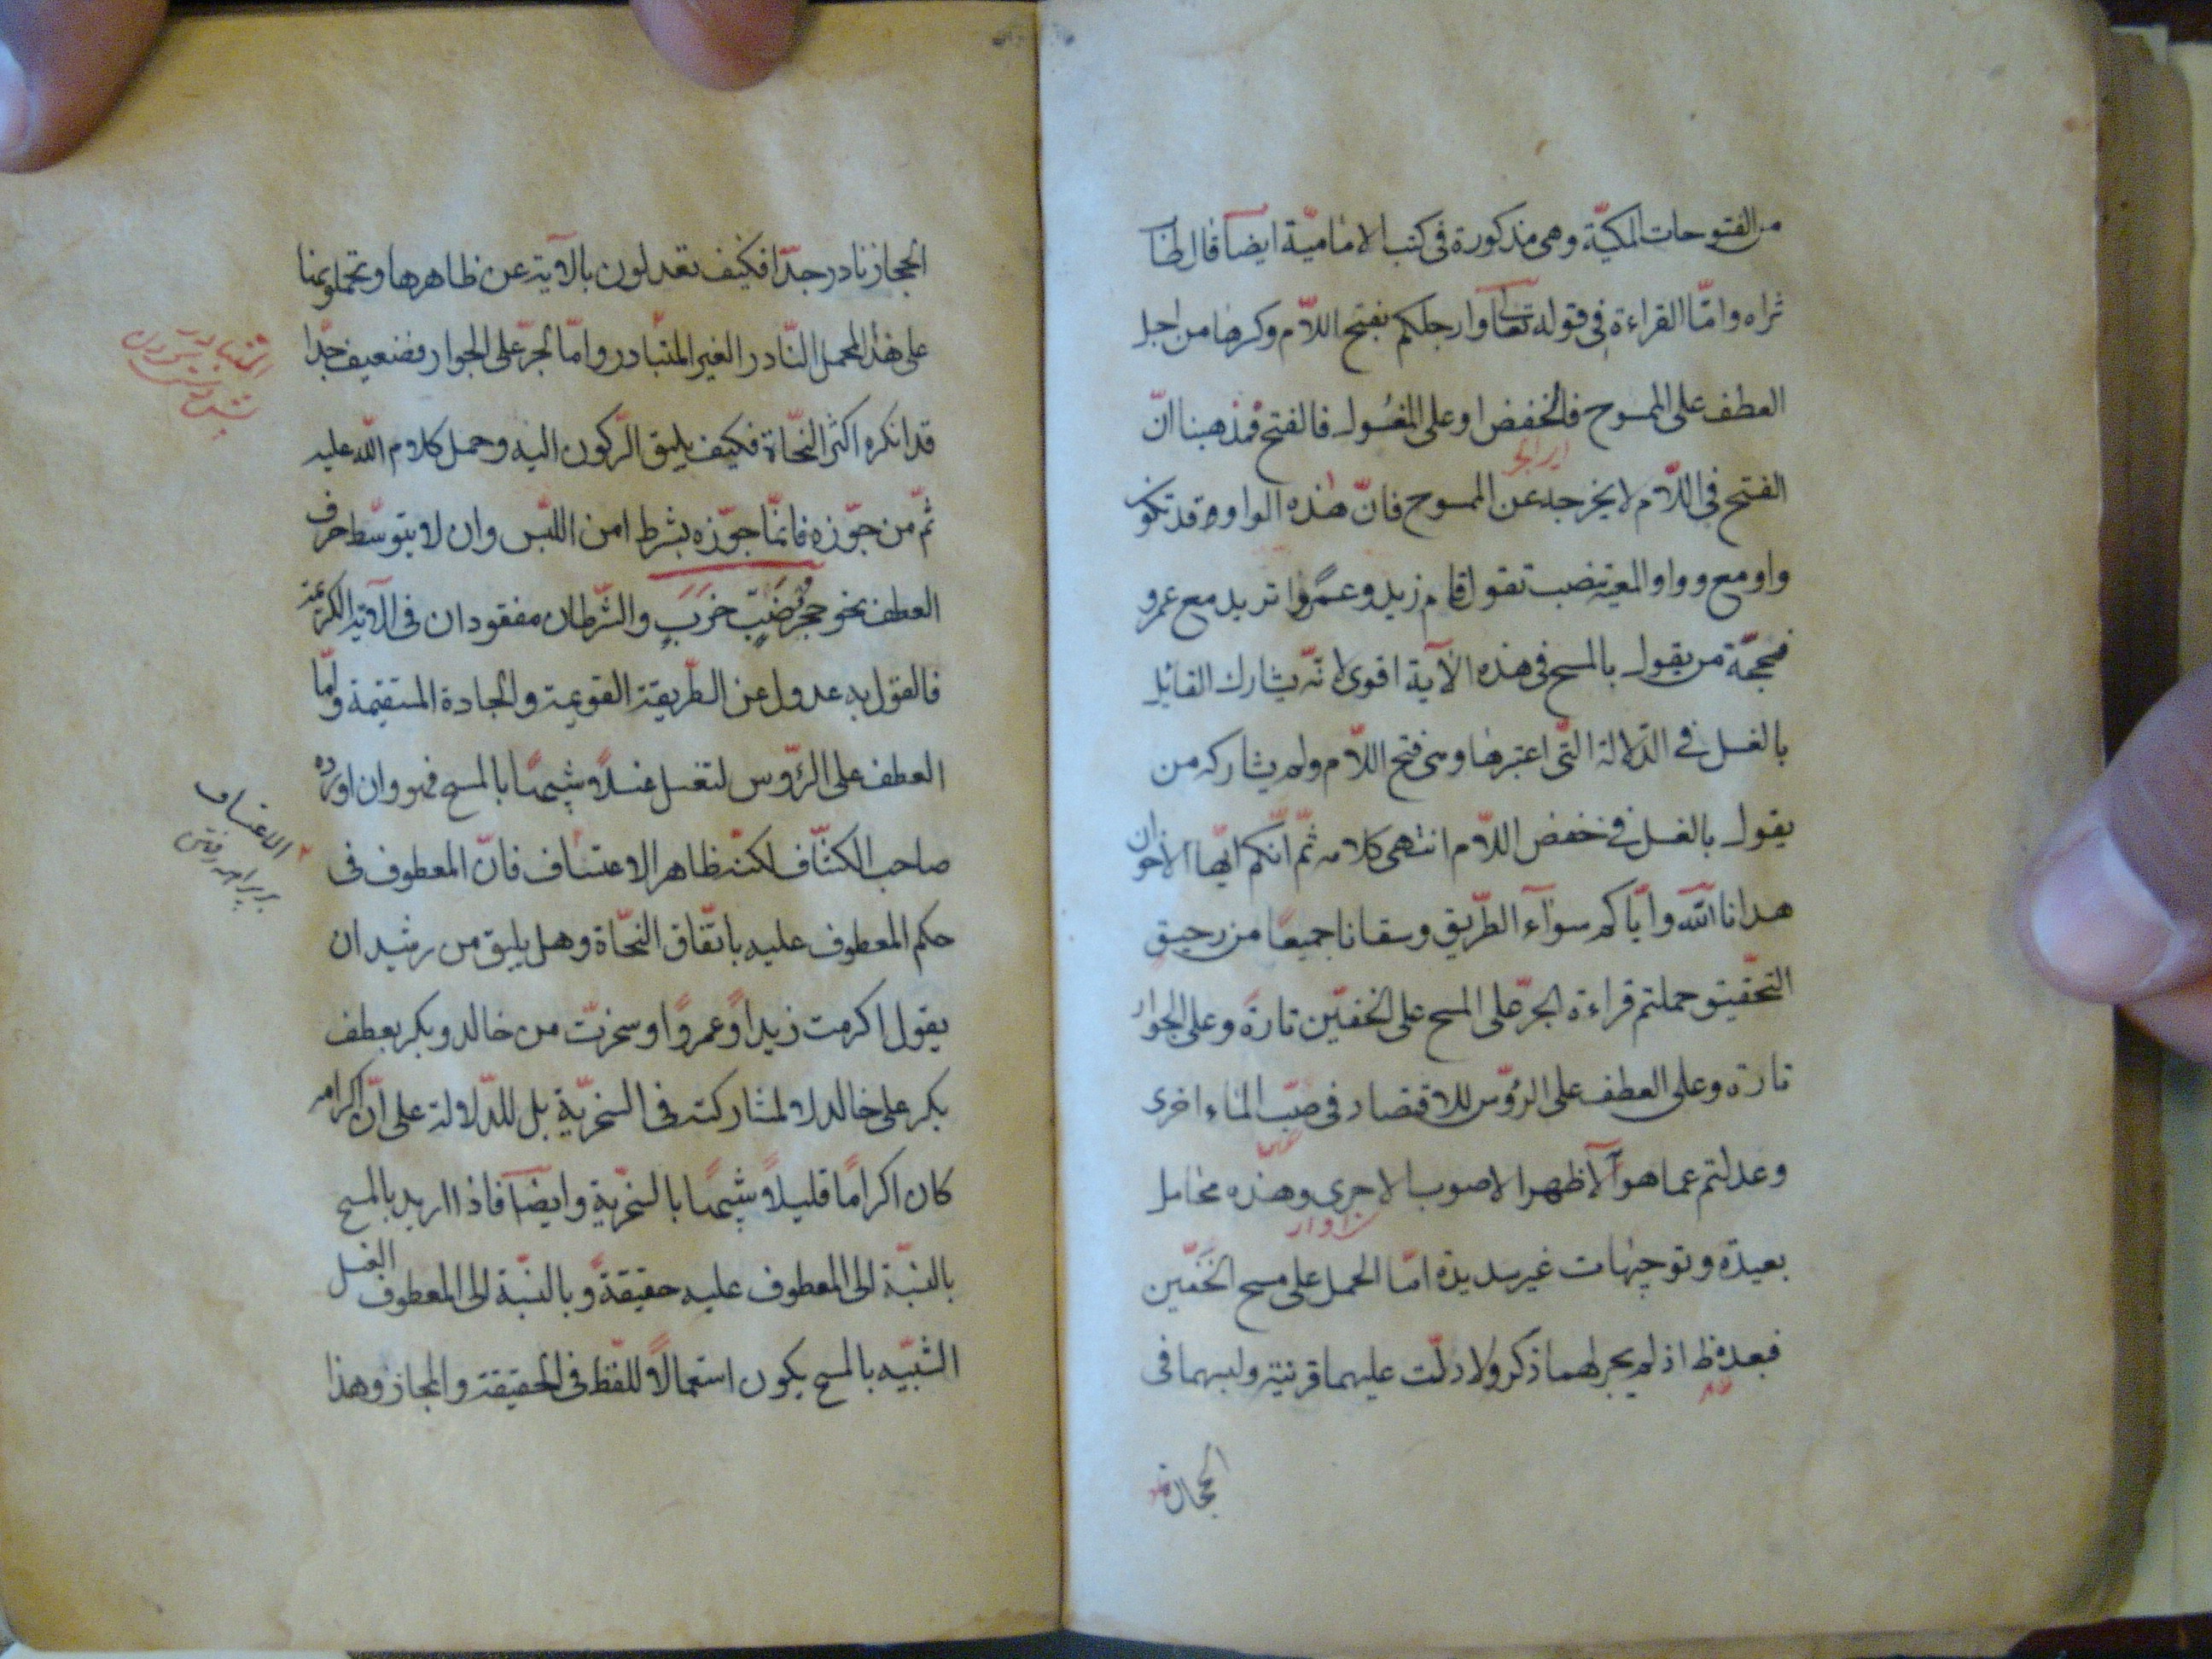 من الفتوحات المكيّة وهى مذكورة فى كتب الاماميّة ايضا قال طاب
ثراه وامّا القراءة فى قوله تعالى وارجلكم بفتح اللّام وكرها من اجل
العطف على الممسوح فالخفض او على المغسول فالفتح فمذهبنا انّ
الفتح فى اللّام لا يخرجه عن الممسوح فانّ هذه الواو قد تكون
واو مع وواو المعية تنصب تقول قام زيد وعمروا تريد مع عمرو
فحجّة من يقول بالمسح فى هذه الآية اقوى لانّه يشارك القائل
بالغسل فى الدّلالة الّتى اعتبرها وهى فتح اللّام ولم يشاركه من
يقول بالغسل فى خفض اللّام انتهى كلامه ثمّ انّكم ايّها الاخوان
هدانا اللّه وايّاكم سوآء الطّريق وسقانا جميعًا من رحيق
التّحقيق حملتم قراءة الجرّ على المسح على الخفّين تارة وعلى الجوار
تارة وعلى العطف على الرّؤس للاقتصاد فى صبّ الماء اخرى
وعدلتم عما هو الاظهر الاصوب الاحرى وهذه محامل
سزاوار
بعيدة وتوجيهات غير سديدة امّا الحمل على مسح الخفّين
فبعده ظ اذ لم يجر لهما ذكر ولا دلّت عليهما قرينة ولبسهما فى
الحجاز
الحجاز نادر جدّا فكيف تعدلون بالآية عن ظاهرها وتحملونها
على هذا المحمل النّادر الغير المتبادر وامّا الجرّ على الجوار فضعيف جدّا
قد انكره اكثر النّحاة فكيف يليق الرّكون اليه وحمل كلام اللّه عليه
ثمّ من جوّزه فانّما جوّزه بشرط امن اللبس وان لا يتوسّط حرف
العطف نحو جحرُ ضبٍّ خربٍ والشّرطان مفقودان فى الآية الكريمة
فالقول به عدول عن الطّريقة القويمة والجادة المستقيمة وامّا
العطف على الرّؤس لتغسل غسلًا شبيهًا بالمسح فهو وان اورده
صاحب الكشّاف لكنّه ظاهر الاعتساف فانّ المعطوف فى
الاعتساف
حكم المعطوف عليه باتّفاق النّحاة وهل يليق من رشيد ان
يقول اكرمت زيدًا وعمروًا وسخرت من خالد وبكر بعطف
بكر على خالد لا لمشاركته فى السخريّة بل للدّلالة على انّ اكرامه
كان اكرامًا قليلًا شبيهًا بالسخريّة وايضا فاذا اريد بالمسح
بالنسبّة الى المعطوف عليه حقيقةً وبالنسبّة الى المعطوف الغسل
الشبّيه بالمسح يكون استعمالًا للّفظ فى الحقيقة والمجاز وهذا